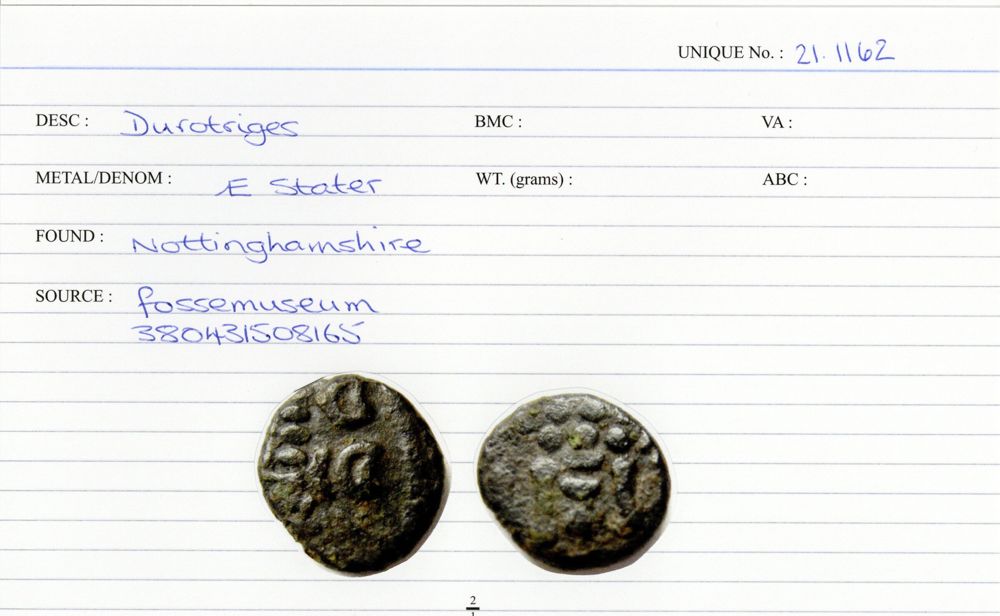 UNIQUE No. : 21.1162
DESC : Durotriges BMC : VA :
METAL/DENOM : Æ Stater WT. (grams) : ABC :
FOUND : Nottinghamshire
SOURCE : fossemuseum
380431508165
2
1